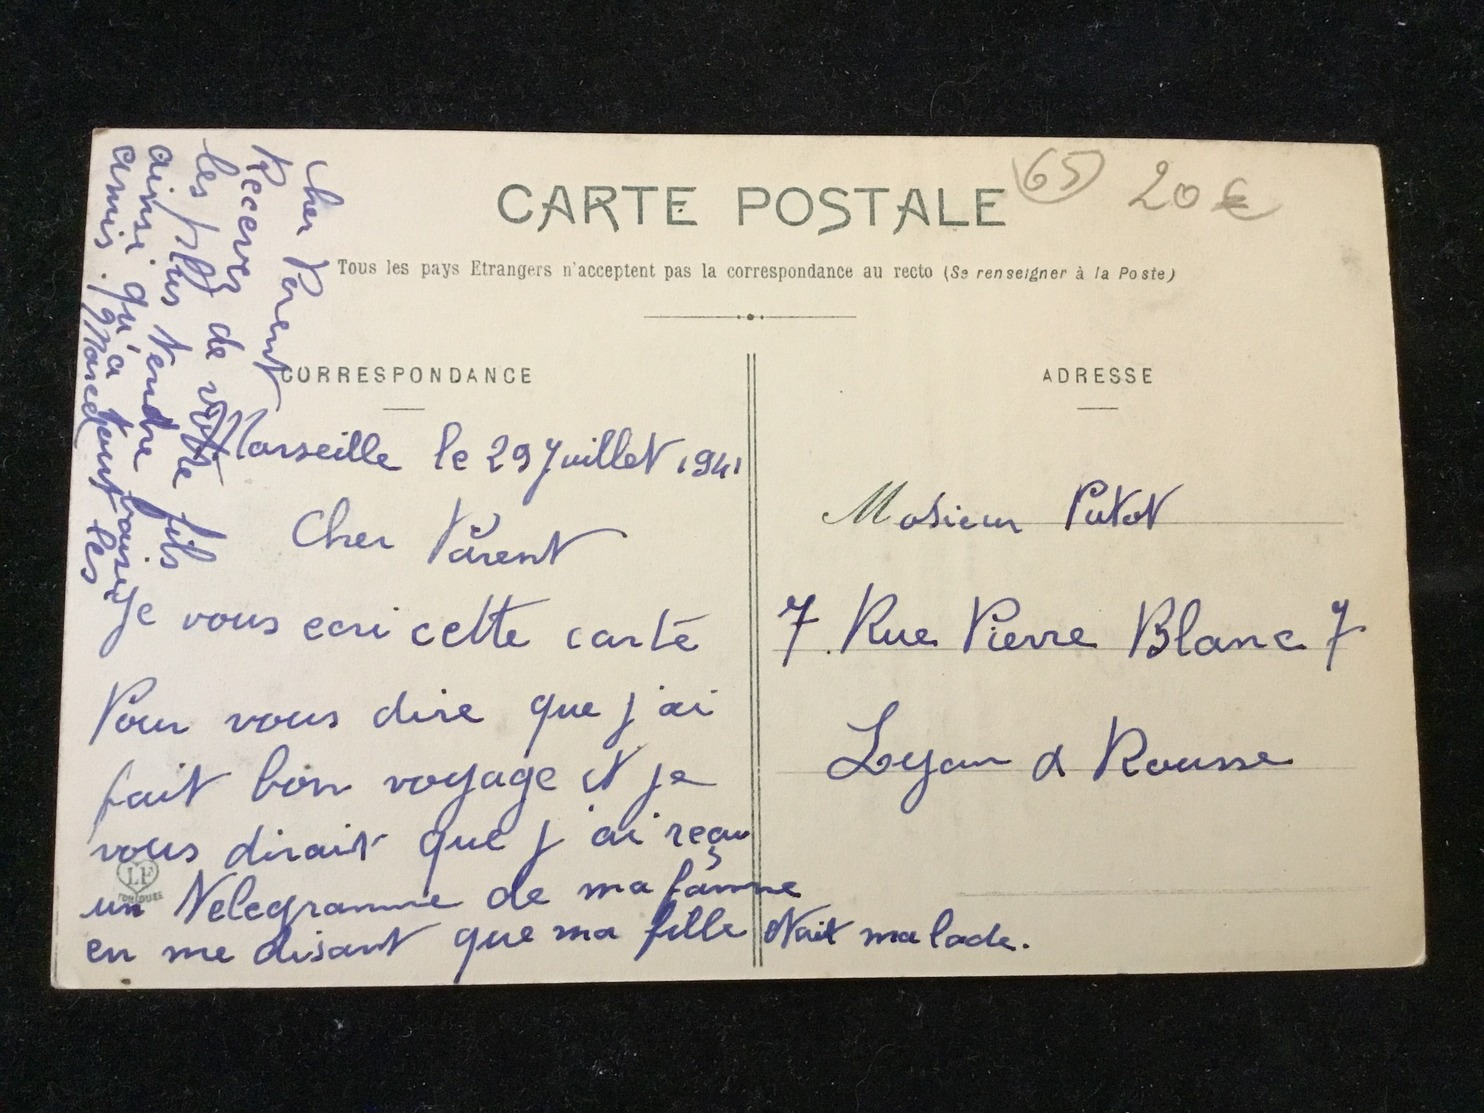 CARTE POSTALE
65 20€
Tous les pays Etrangers n'acceptent pas la correspondance au recto (Se renseigner à la Poste)
CORRESPONDANCE
Marseille le 29 Juillet 1941
Cher Parent
Je vous ecri cette carte
Pour vous dire que j'ai
fait bon voyage et je
vous dirait que j'ai reçu
un Telegramme de ma famme
en me disant que ma fille etait malade.
cher Parent
Recevez de votre fils
les plus tendre baisé
ainsi qu'a tout les
amis. Marcel
LF
TOULOUSE
ADRESSE
Mosieur Putot
7. Rue Pierre Blanc 7
Lyon X Rousse